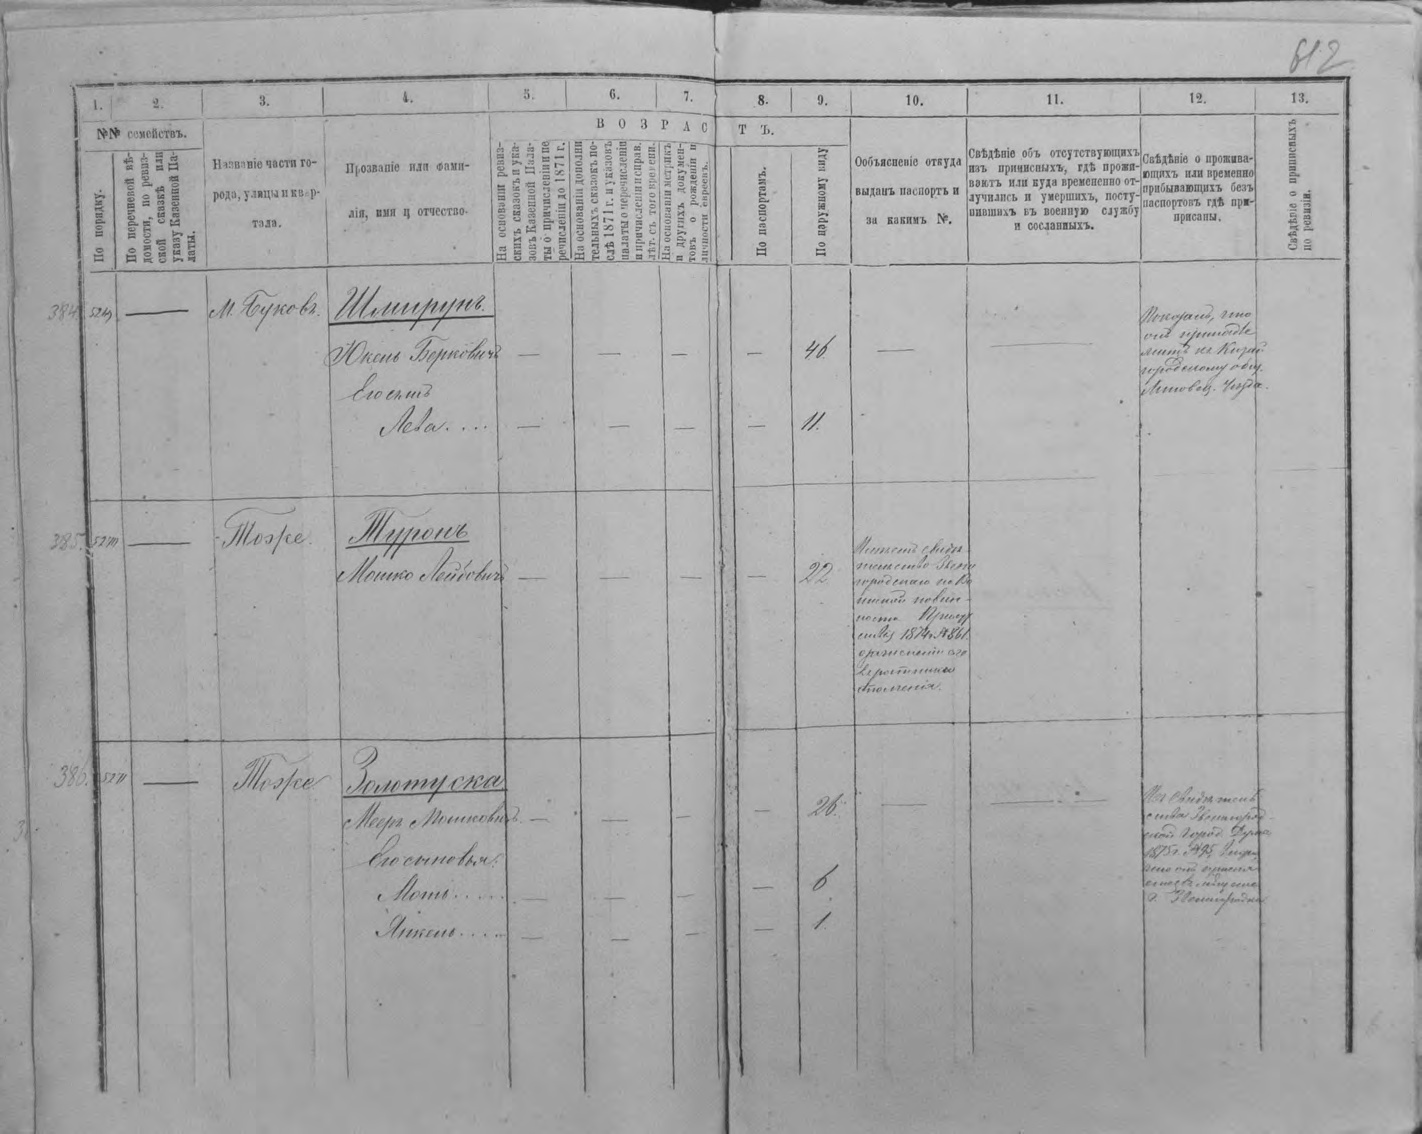 612
1. 2. 3. 4. 5. 6. 7. 8. 9. 10. 11. 12. 13.
№№ семействъ.
По порядку.
По перечневой вѣ-
домости, по ревиз-
ской сказкѣ или
указу Казенной Па-
латы.
Названіе части го-
рода, улицы и квар-
тала.
Прозваніе или фами-
лія, имя и отчество.
ВОЗРАСТЪ.
На основаніи ревиз-
скихъ сказокъ и ука-
зовъ Казенной Пала-
ты о причисленіи и пе
речисленіи до 1871 г.
На основаніи дополни
тельныхъ сказокъ по-
слѣ 1871 г. и указовъ
палаты о перечисленіи
и причисленіи и справ.
лѣт. съ того времени.
На основаніи метрикъ
и другихъ докумен-
товъ о рожденіи и
личности евреевъ.
По паспортамъ.
По наружному виду
Объясненіе откуда
выданъ паспортъ и
за какимъ №.
Свѣдѣніе объ отсутствующихъ
изъ приписныхъ, гдѣ прожи-
ваютъ или куда временно от-
лучились и умершихъ, посту-
пившихъ въ военную службу
и сосланныхъ.
Свѣдѣніе о прожива-
ющихъ или временно
прибывающихъ безъ
паспортовъ гдѣ при-
писаны.
Свѣдѣніе о приписныхъ
по ревизіи.
384. — М. Буковъ. Шмирунъ.
Юкель Берковичъ — — — — 46 — —
Его сынъ
Лейба.... — — — — 11.
Показалъ, что
онъ принадле
житъ къ Китай
городскому общ.
Липовец. Уезда.
385. — Тоже. Туронъ
Мошко Лейбовичъ — — — — 22
Имѣетъ свидѣ
тельство Звени
городскаго по Во
инской повин-
ности Присут
ствія 1874 г. №861.
386. — Тоже Золотуска
Мееръ Мошковичъ — — — — 26. — —
Его сыновья:
Моть..... — — — — 6
Янкель.... — — — — 1.
Изъ свидѣтель
ства Звенигород-
ской Город. Думы
1875 г. №95,
г. Звенигородка